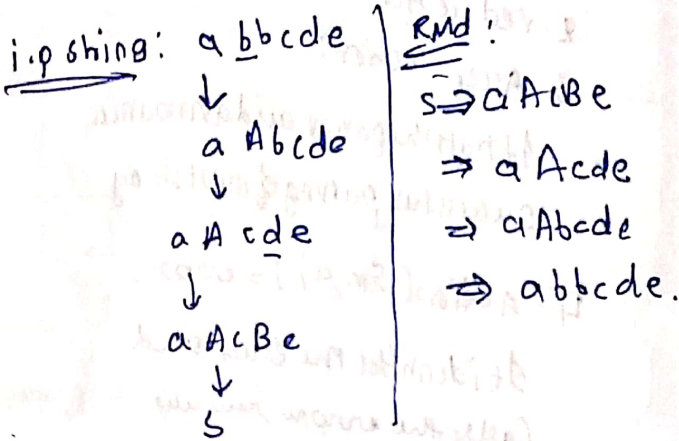 i.p string: abbcde
↓
aAbcde
↓
aAcde
↓
aAcBe
↓
S
RMd:
S⇒aAcBe
⇒ aAcde
⇒ aAbcde
⇒ abbcde.